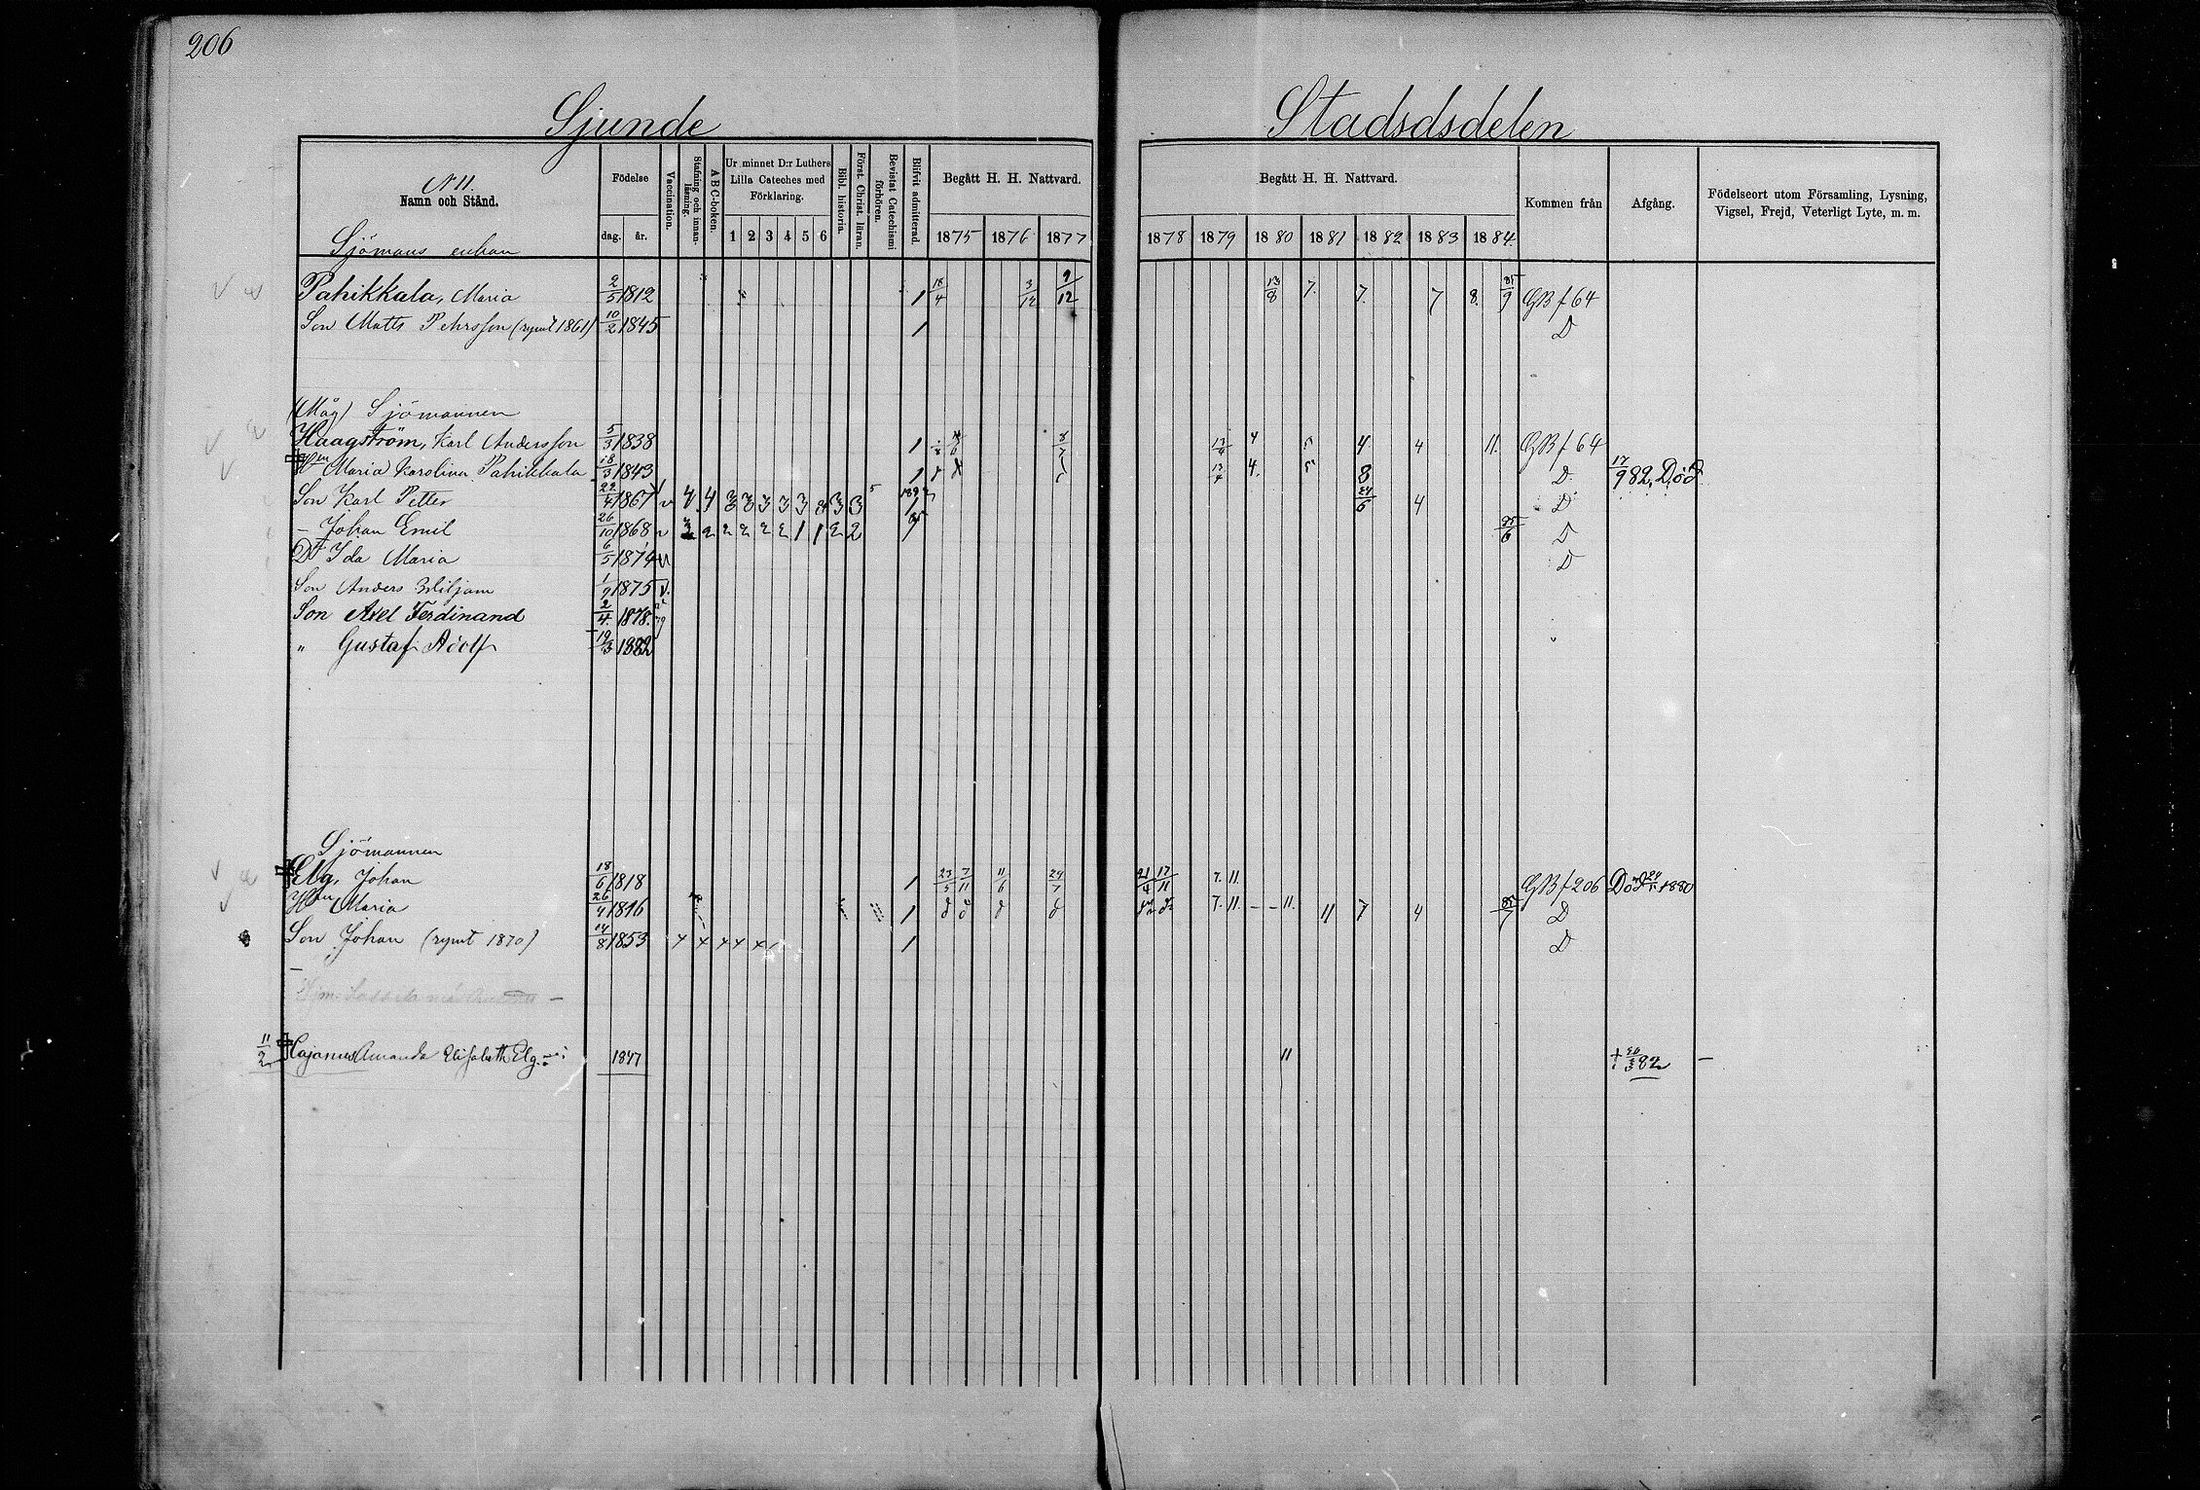 206
Sjunde Stadsdsdelen
N 11.
Namn och Stånd.
Födelse
dag. år.
Vaccination.
Stafning och innanläsning.
ABC-boken.
Ur minnet D:r Luthers Lilla Cateches med Förklaring.
1 2 3 4 5 6
Bibl. historia.
Först. Christ. läran.
Bevistat Catechismi förhören.
Blifvit admitterad.
Begått H. H. Nattvard.
1875 1876 1877
Begått H. H. Nattvard.
1878 1879 1880 1881 1882 1883 1884
Kommen från
Afgång.
Födelseort utom Församling, Lysning, Vigsel, Frejd, Veterligt Lyte, m. m.
Sjömans enkan
Pahikkala, Maria 2/5 1812 1 18/4 3/12 9/12 13/8 7. 7. 7 8. 85/9 GB f 64
Son Matts Pehrsson (rymt 1861) 10/2 1845 1 D
(Måg) Sjömannen
Haagström, Karl Andersson 5/3 1838 1 4 5 4 4 11. GB f 64
Hn Maria Karolina Pahikkala 18/3 1843 1 4. 5 8 D. 17/9 82, Död
Son Karl Petter 22/4 1867 v 4 4 3 3 3 3 3 3 3 3 5 1 24/6 4 D
- Johan Emil 26/10 1868 v 2 2 2 2 2 2 1 1 2 2 85 85/6 D
Dr Ida Maria 6/5 1874 v D
Son Anders Viljam 1875 v.
Son Axel Ferdinand 2/4. 1878. 79
" Gustaf Adolf 19/3 1882
Sjömannen
Elg, Johan 18/6 1818 1 23/5 7/11 11/6 21/4 17/11 7. 11. GB f 206 Död 24/1 1880
Hn Maria 26/4 1816 1 7. 11. - - 11. 11 7 4 85/7 D
Son Johan (rymt 1870) 14/8 1853 x x x x x 1 D
11/2 Cajanus Amanda Elisabeth Elg 1847 11 + 82 -